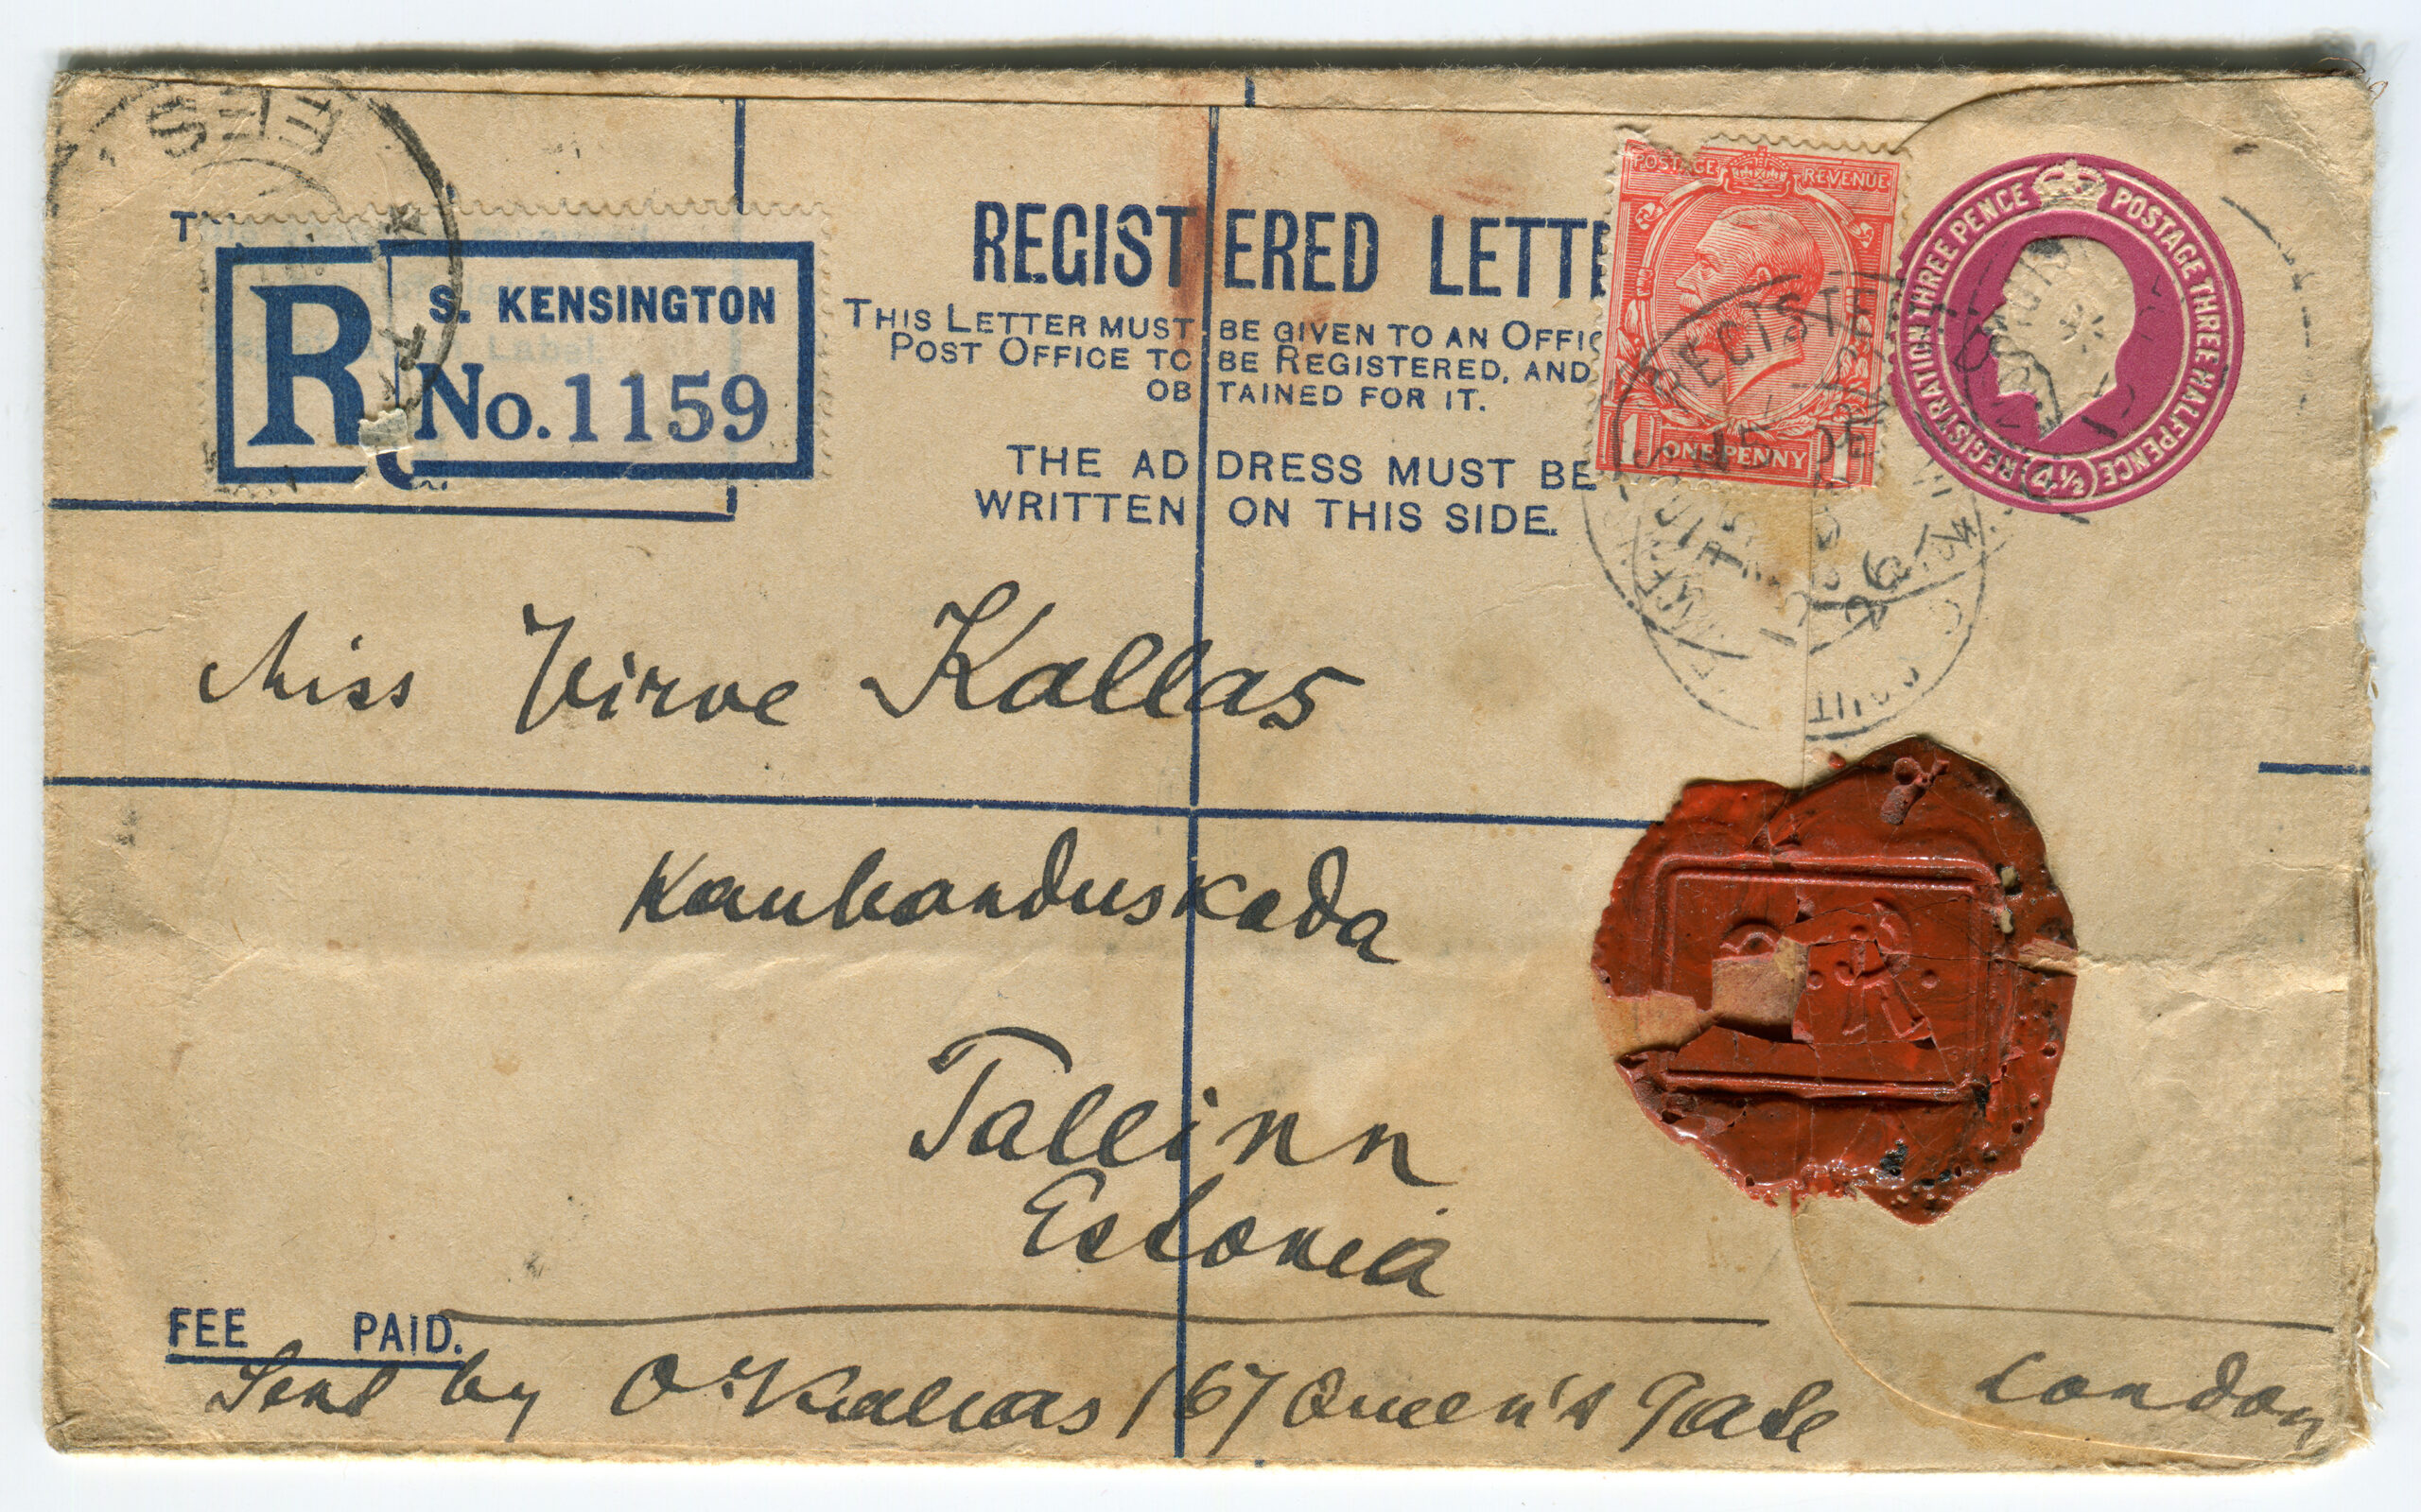 REGISTERED LETTE
THIS LETTER MUST BE GIVEN TO AN OFFIC
POST OFFICE TO BE REGISTERED, AND
OBTAINED FOR IT.
THE ADDRESS MUST BE
WRITTEN ON THIS SIDE.
R
S. KENSINGTON
No. 1159
POSTAGE REVENUE
1 ONE PENNY 1
REGISTRATION THREE PENCE
POSTAGE THREE HALFPENCE
4½D
REGISTE
15 DE
26
Miss Virve Kallas
Kaubanduskoda
Tallinn
Estonia
FEE PAID.
Sent by O. Kallas 167 Queen's Gate London